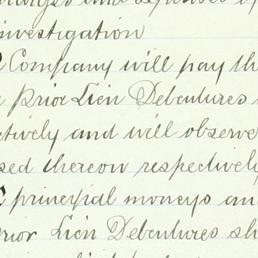 investigation
Company will pay the
Prior Lien Debentures
ectively and will observe
sed thereon respectively
principal moneys an
rior Lien Debentures sh